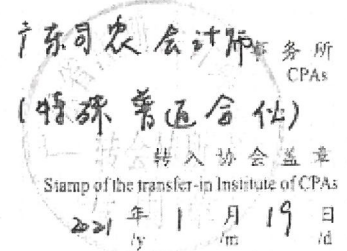 广东司农会计师事务所
CPAs
(特殊普通合伙)
转入协会盖章
Stamp of the transfer-in Institute of CPAs
2021 年 1 月 19 日
/y /m /d